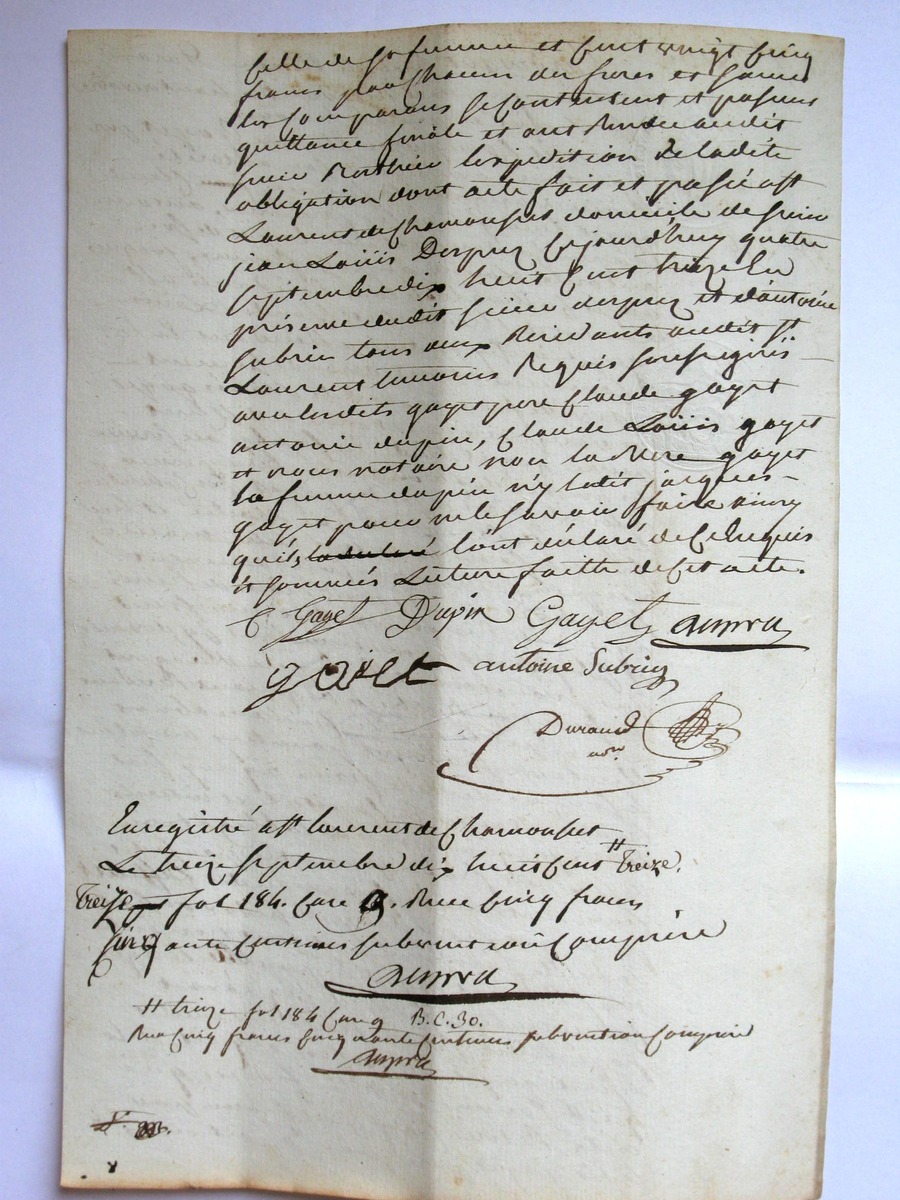 Celle de sa femme et Cent vingt Cinq
francs pour Chacun des freres et soeurs
les Comparans se Contentent et passent
quittance finale et ont Rendu audit
sieur Berthier lexpedition de ladite
obligation dont acte fait et passé a st
Laurent de Chamousset domicile de sieur
jean Louis Desprez Cejourdhuy quatre
septembre dix huit Cent treize En
présence dudit sieur desprez et d'antoine
subrin tous deux Residants audit st
Laurent temoins Requis soussignés
avec lesdits gayet pere Claude gayet
antoine dupin, Claude Louis gayet
et nous notaire non la Mere gayet
la femme dupin n'y ledit jacques
gayet pour ne le savoir faire ainsy
qu'ils l'ont déclaré de Ce Enquis
et sommés Lecture faitte de Cet acte.
C Gayet Dupin Gayet
gaiet antoine Subrin
Durand
nore
Enregistré a st laurent de Chamousset
Le treize septembre dix huit Cent treize.
treize fol 184. Case 9. Recu Cinq francs
Cinquante Centimes subvention Comprise
# treize fol 184 Case 9 B.C.30.
Recu Cinq francs Cinquante Centimes subvention Comprise